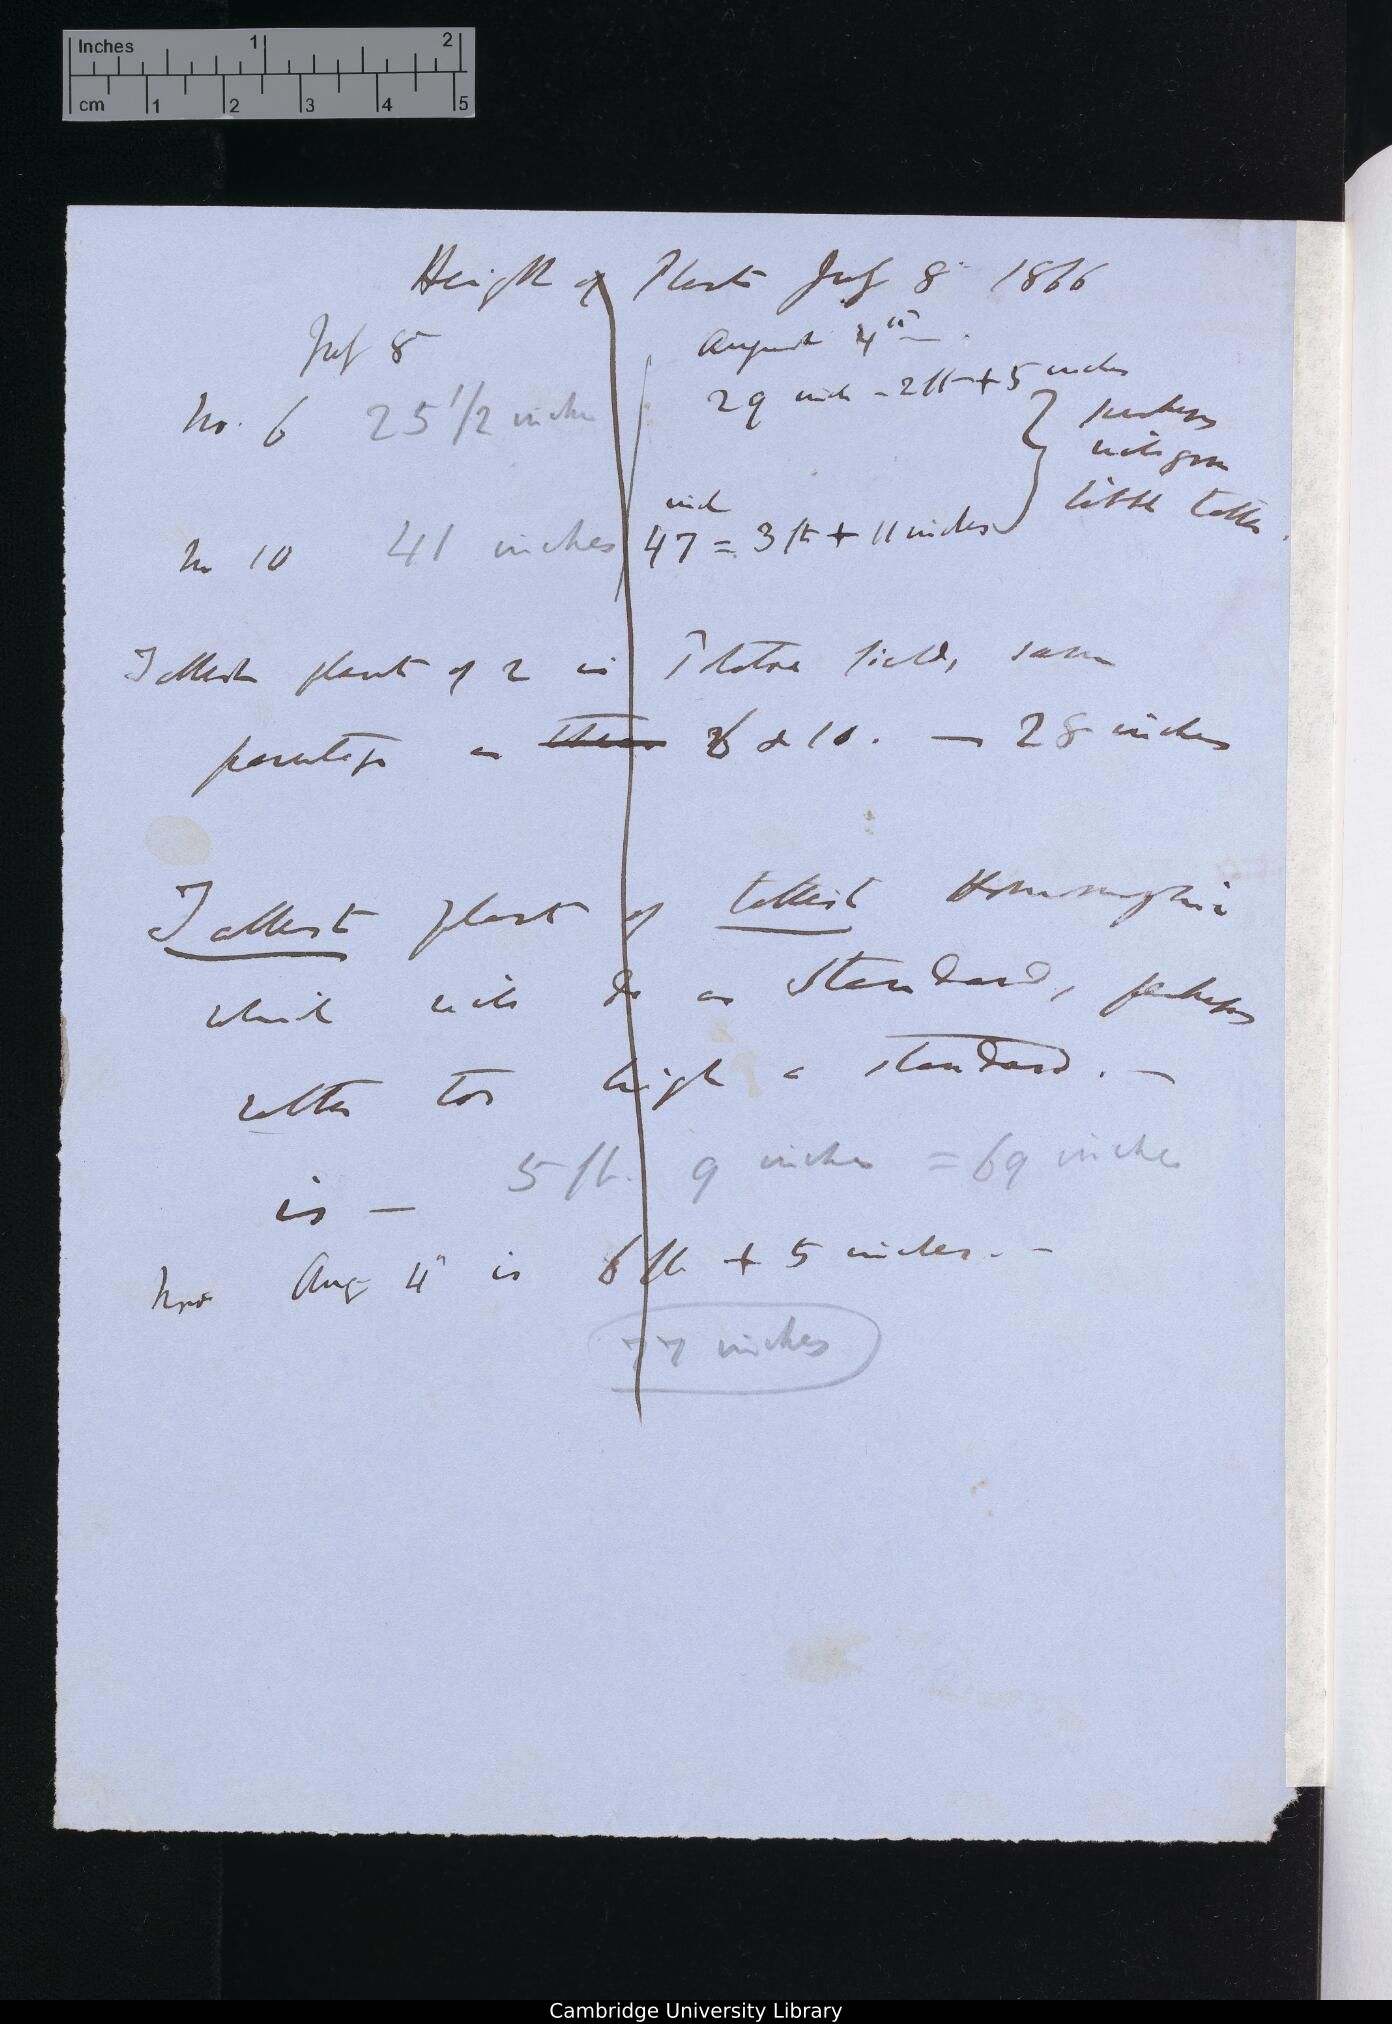 Inches 1 2
cm 1 2 3 4 5
Height of Plants July 8 1866
July 8
August 4th
No. 6 25 1/2 inches
29 inch = 2 ft + 5 inches
perhaps
will grow
little taller.
inch
No 10 41 inches
47 = 3 ft + 11 inches
Tallest plant of 2 in field, same
parentage as these 6 & 10. — 28 inches
Tallest plant of tallest Homomorphic
which will do as standard, perhaps
rather too high a standard. —
is — 5 ft. 9 inches = 69 inches
Now Aug 4th is 6 ft + 5 inches. —
77 inches
Cambridge University Library